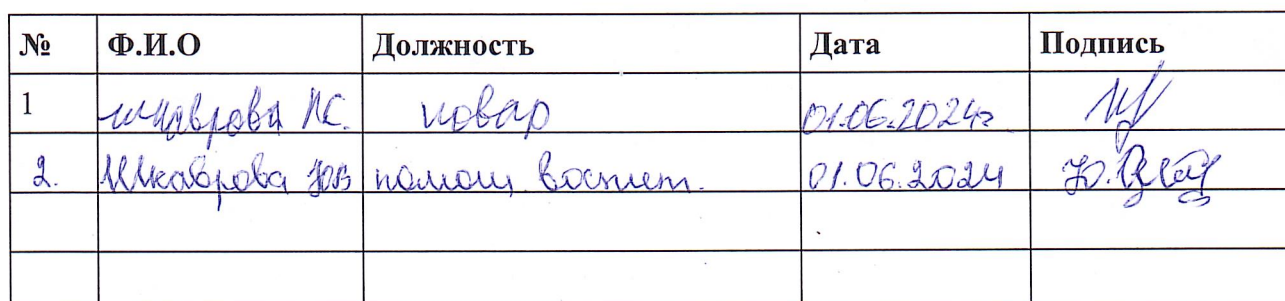 № Ф.И.О Должность Дата Подпись
1 Шкаврова Л.С. повар 01.06.2024г
2. Шкаврова Ю.В помощ. воспит. 01.06.2024